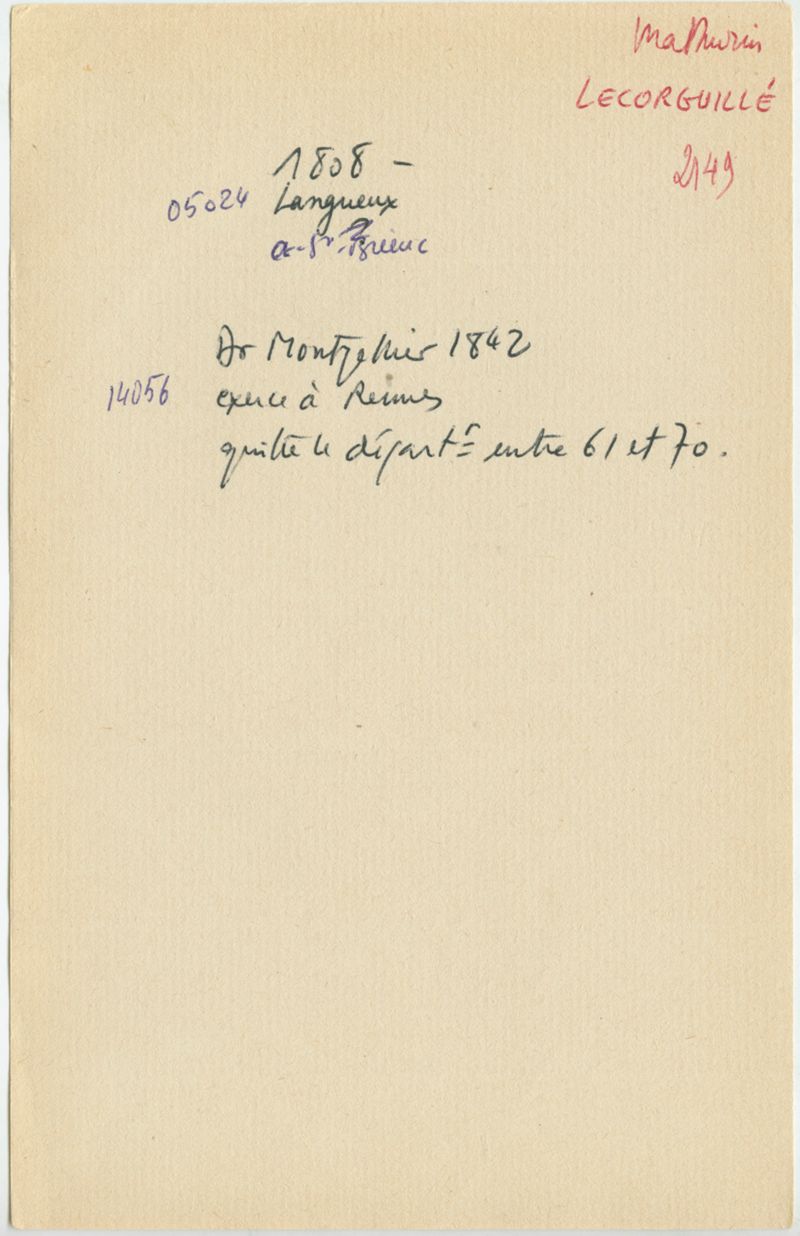 Mathurin
LECORGUILLÉ
2149
1808 -
05024 Langueux
a. St. Brieuc
Dr Montpellier 1842
14056 exerce à Rennes
quitte le départt entre 61 et 70.